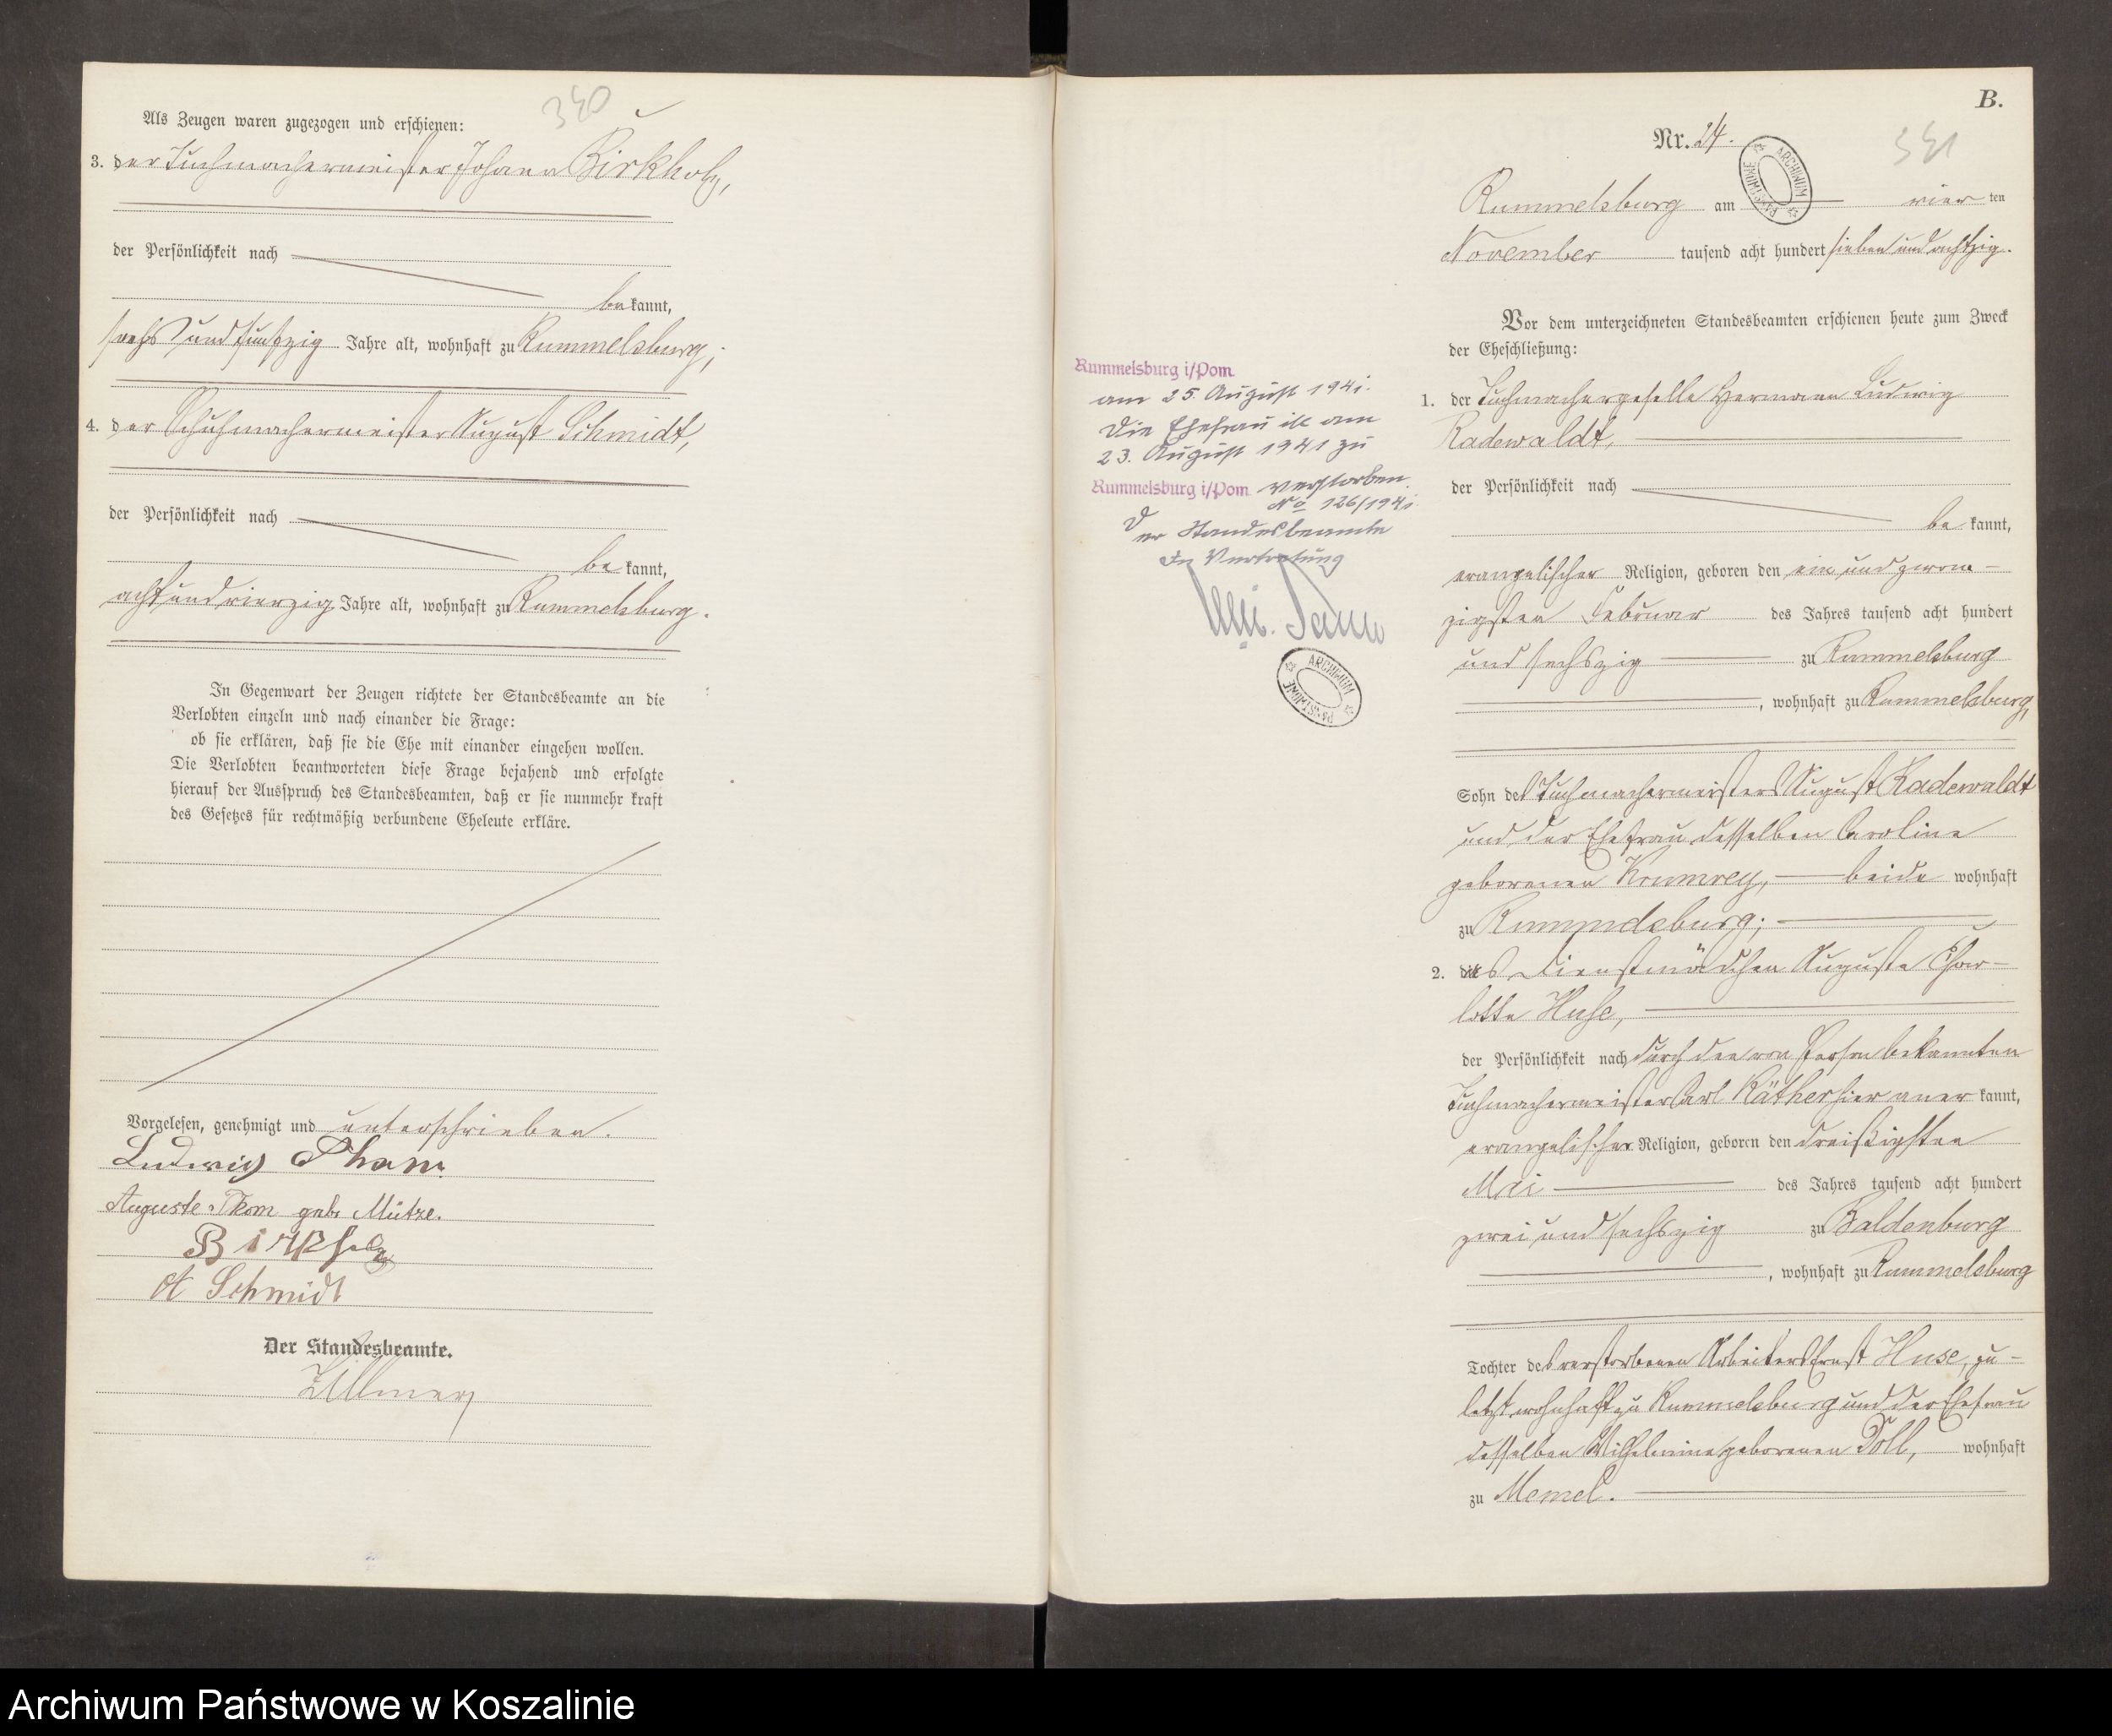 340
Als Zeugen waren zugezogen und erschienen:
3. der Tuchmachermeister Johann Birkholz,
der Persönlichkeit nach
bekannt,
sechs und funfzig Jahre alt, wohnhaft zu Rummelsburg;
4. der Schuhmachermeister August Schmidt,
der Persönlichkeit nach
bekannt,
acht und vierzig Jahre alt, wohnhaft zu Rummelsburg.
In Gegenwart der Zeugen richtete der Standesbeamte an die
Verlobten einzeln und nach einander die Frage:
ob sie erklären, daß sie die Ehe mit einander eingehen wollen.
Die Verlobten beantworteten diese Frage bejahend und erfolgte
hierauf der Ausspruch des Standesbeamten, daß er sie nunmehr kraft
des Gesetzes für rechtmäßig verbundene Eheleute erkläre.
Vorgelesen, genehmigt und unterschrieben.
Ludwig Thom
Auguste Thom geb. Mütze.
Birkholz
A Schmidt
Der Standesbeamte.
Zillmer
B.
341
Nr. 24.
ARCHIWUM PAŃSTWOWE
Rummelsburg am vierten
November tausend acht hundert sieben und achtzig.
Vor dem unterzeichneten Standesbeamten erschienen heute zum Zweck
der Eheschließung:
1. der Tuchmachergeselle Hermann Ludwig
Radewaldt,
der Persönlichkeit nach
bekannt,
evangelischer Religion, geboren den ein und zwan-
zigsten Februar des Jahres tausend acht hundert
und sechszig zu Rummelsburg
, wohnhaft zu Rummelsburg,
Sohn des Tuchmachermeisters August Radewaldt
und der Ehefrau desselben Caroline
geborenen Krumrey, beide wohnhaft
zu Rummelsburg;
2. das Dienstmädchen Auguste Char-
lotte Huse,
der Persönlichkeit nach durch den von Person bekannten
Tuchmachermeister Carl Käther hier anerkannt,
evangelischer Religion, geboren den dreißigsten
Mai des Jahres tausend acht hundert
zwei und sechszig zu Baldenburg
, wohnhaft zu Rummelsburg
Tochter des verstorbenen Arbeiters Ernst Huse, zu-
letzt wohnhaft zu Rummelsburg und der Ehefrau
desselben Wilhelmine geborenen Doll, wohnhaft
zu Memel.
Rummelsburg i/Pom
am 25. August 1941.
Die Ehefrau ist am
23. August 1941 zu
Rummelsburg i/Pom verstorben.
No 126/1941
Der Standesbeamte
In Vertretung
ARCHIWUM PAŃSTWOWE
Archiwum Państwowe w Koszalinie